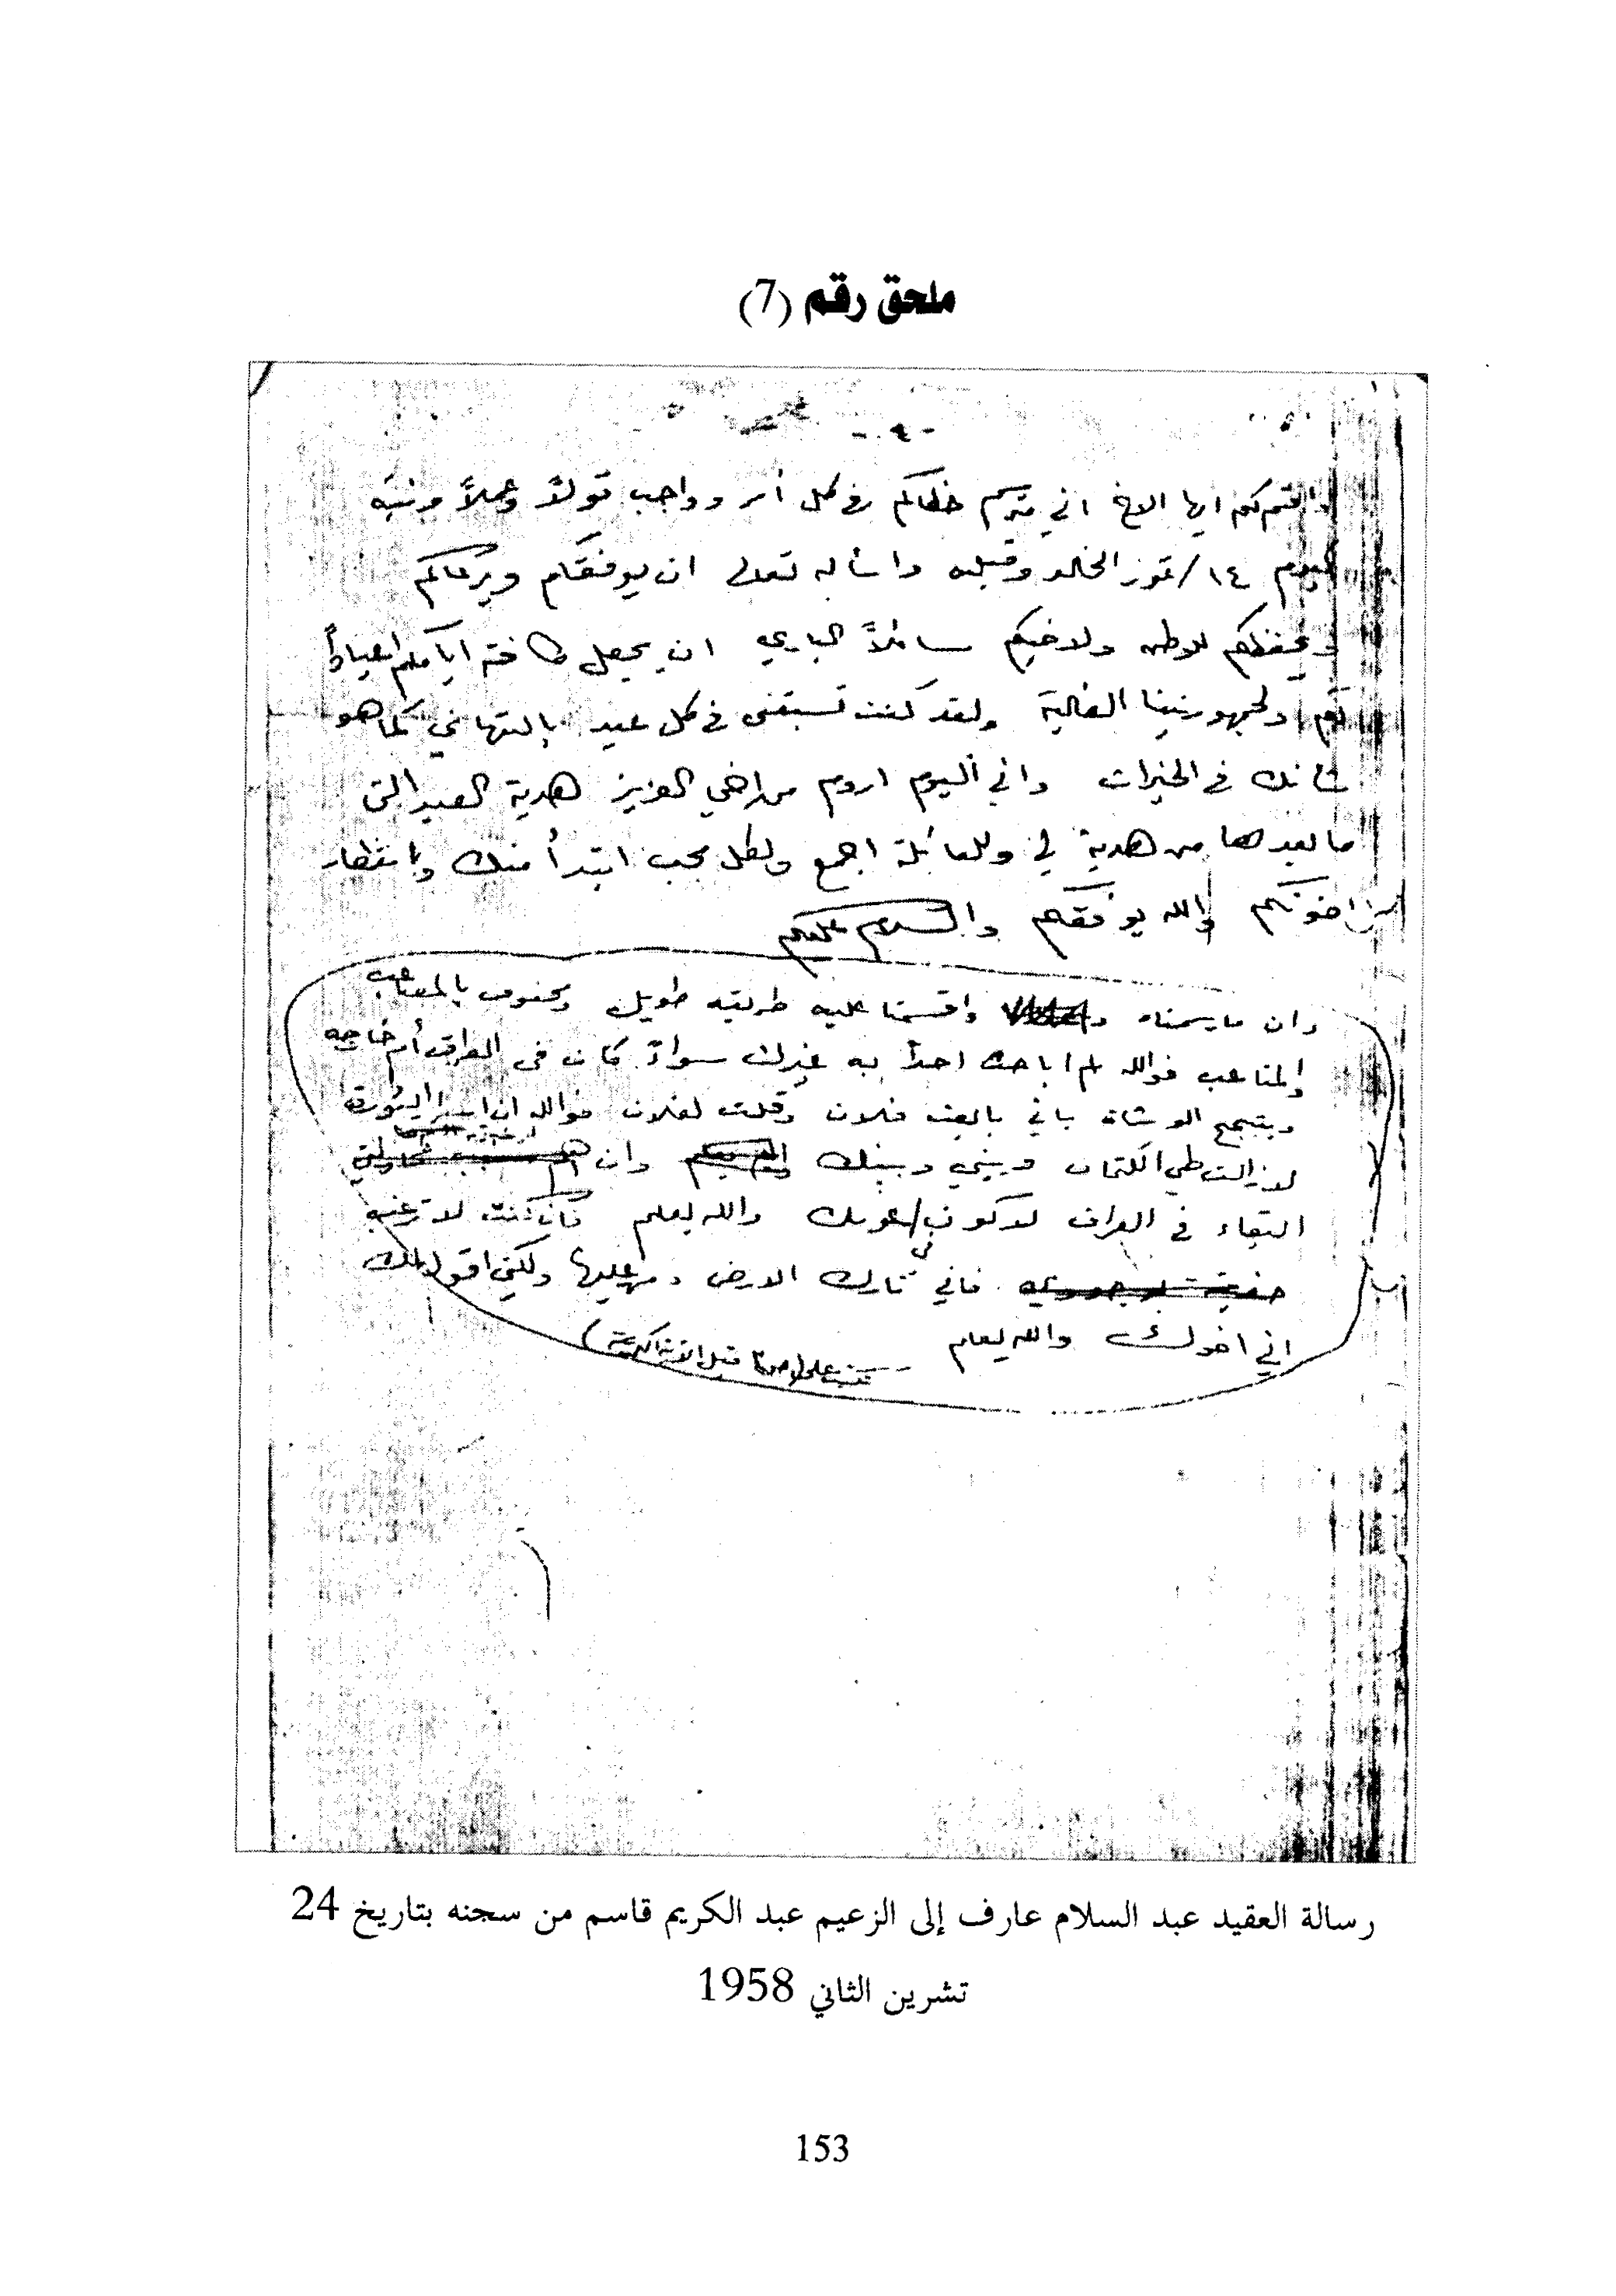 ملحق رقم (7)
- ٤ -
ايها الاخ اني مترسم خطاكم في كل أمر وواجب قولاً وعملاً ونية
ليوم ١٤/تموز الخالد وقبله واسأله تعالى ان يوفقكم ويرعاكم
ويحفظكم للوطن ولاخيكم سائلاً الباري ان يجعل كافة ايامكم اعياداً
لكم ولجمهوريتنا الغالية ولقد كنت تسبقني في كل عيد بالتهاني كما هو
شانك في الخيرات واني اليوم اروم من اخي العزيز هدية العيد التي
ما بعدها من هدية لي وللعائلة اجمع ولكل محب ابتدأ منك وبانتظار
اخوتكم والله يوفقكم والسلام عليكم
وان ما رسمناه واقسمنا عليه طريقه طويل ومحفوف بالمصاعب
والمتاعب فوالله لم اباحث احداً به غيرك سواءً كان في العراق أم خارجه
ويتبجح الوشاة باني بالغت فلان وقلت لفلان فوالله ان اسرار الثورة
لازالت طي الكتمان وبيني وبينك وان
البقاء في العراق لاكون عونك والله يعلم فان كنت لا ترغب
في فاني تارك الارض ومن عليها ولكني اقول لك
اني اخوك والله يعلم
رسالة العقيد عبد السلام عارف إلى الزعيم عبد الكريم قاسم من سجنه بتاريخ 24
تشرين الثاني 1958
153